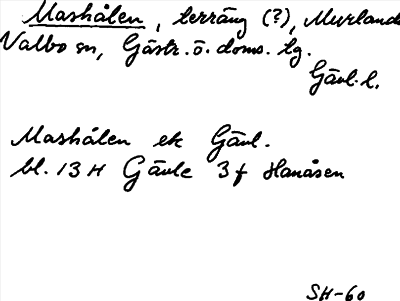 Mashålen, terräng (?), Murlands
Valbo sn, Gästr. ö. doms. tg.
Gävl. l.
Mashålen ek Gävl.
bl. 13 H Gävle 3 f Hanåsen
SH-60